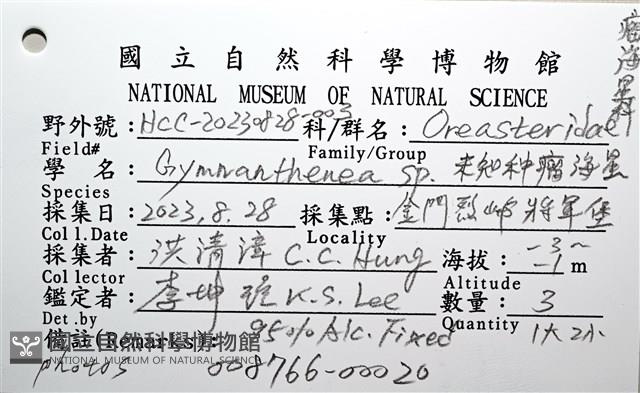 瘤海星科
國立自然科學博物館
NATIONAL MUSEUM OF NATURAL SCIENCE
野外號：HCC-20230828-003 科/群名：Oreasteridae
Field# Family/Group
學名：Gymnanthenea sp. 未知种瘤海星
Species
採集日：2023.8.28 採集點：金門烈嶼將軍堡
Coll.Date Locality
採集者：洪清漳 C.C. Hung 海拔：-3~-1 m
Collector Altitude
鑑定者：李坤瑄 K.S. Lee 數量：3
Det.by Quantity 1大2小
備註(Remarks): 95% Alc. Fixed
國立自然科學博物館
NATIONAL MUSEUM OF NATURAL SCIENCE
photos 008766-00020